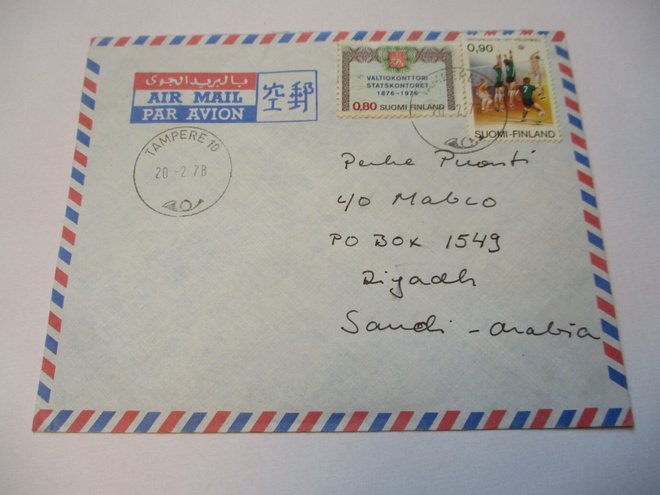 بالبريد الجوى
AIR MAIL
PAR AVION
空郵
TAMPERE 10
20 -2.78
VALTIOKONTTORI
STATSKONTORET
1876-1976
0,80 SUOMI FINLAND
0,90
SUOMI-FINLAND
7
c/o Mabco
PO BOX 1549
Riyadh
Saudi-arabia